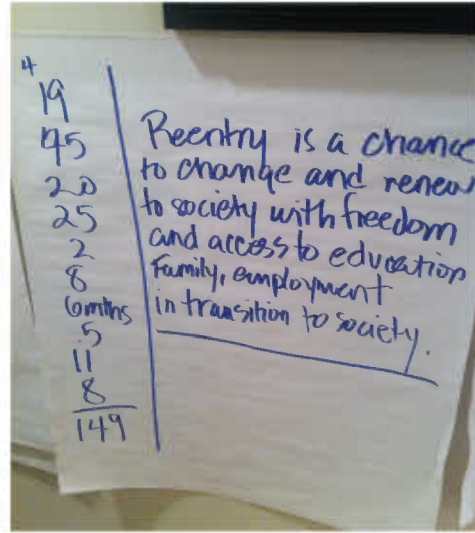 4
19
45
20
25
2
8
6mths
.5
11
8
149
Reentry is a chance
to change and renew
to society with freedom
and access to education
Family, employment
in transition to society.